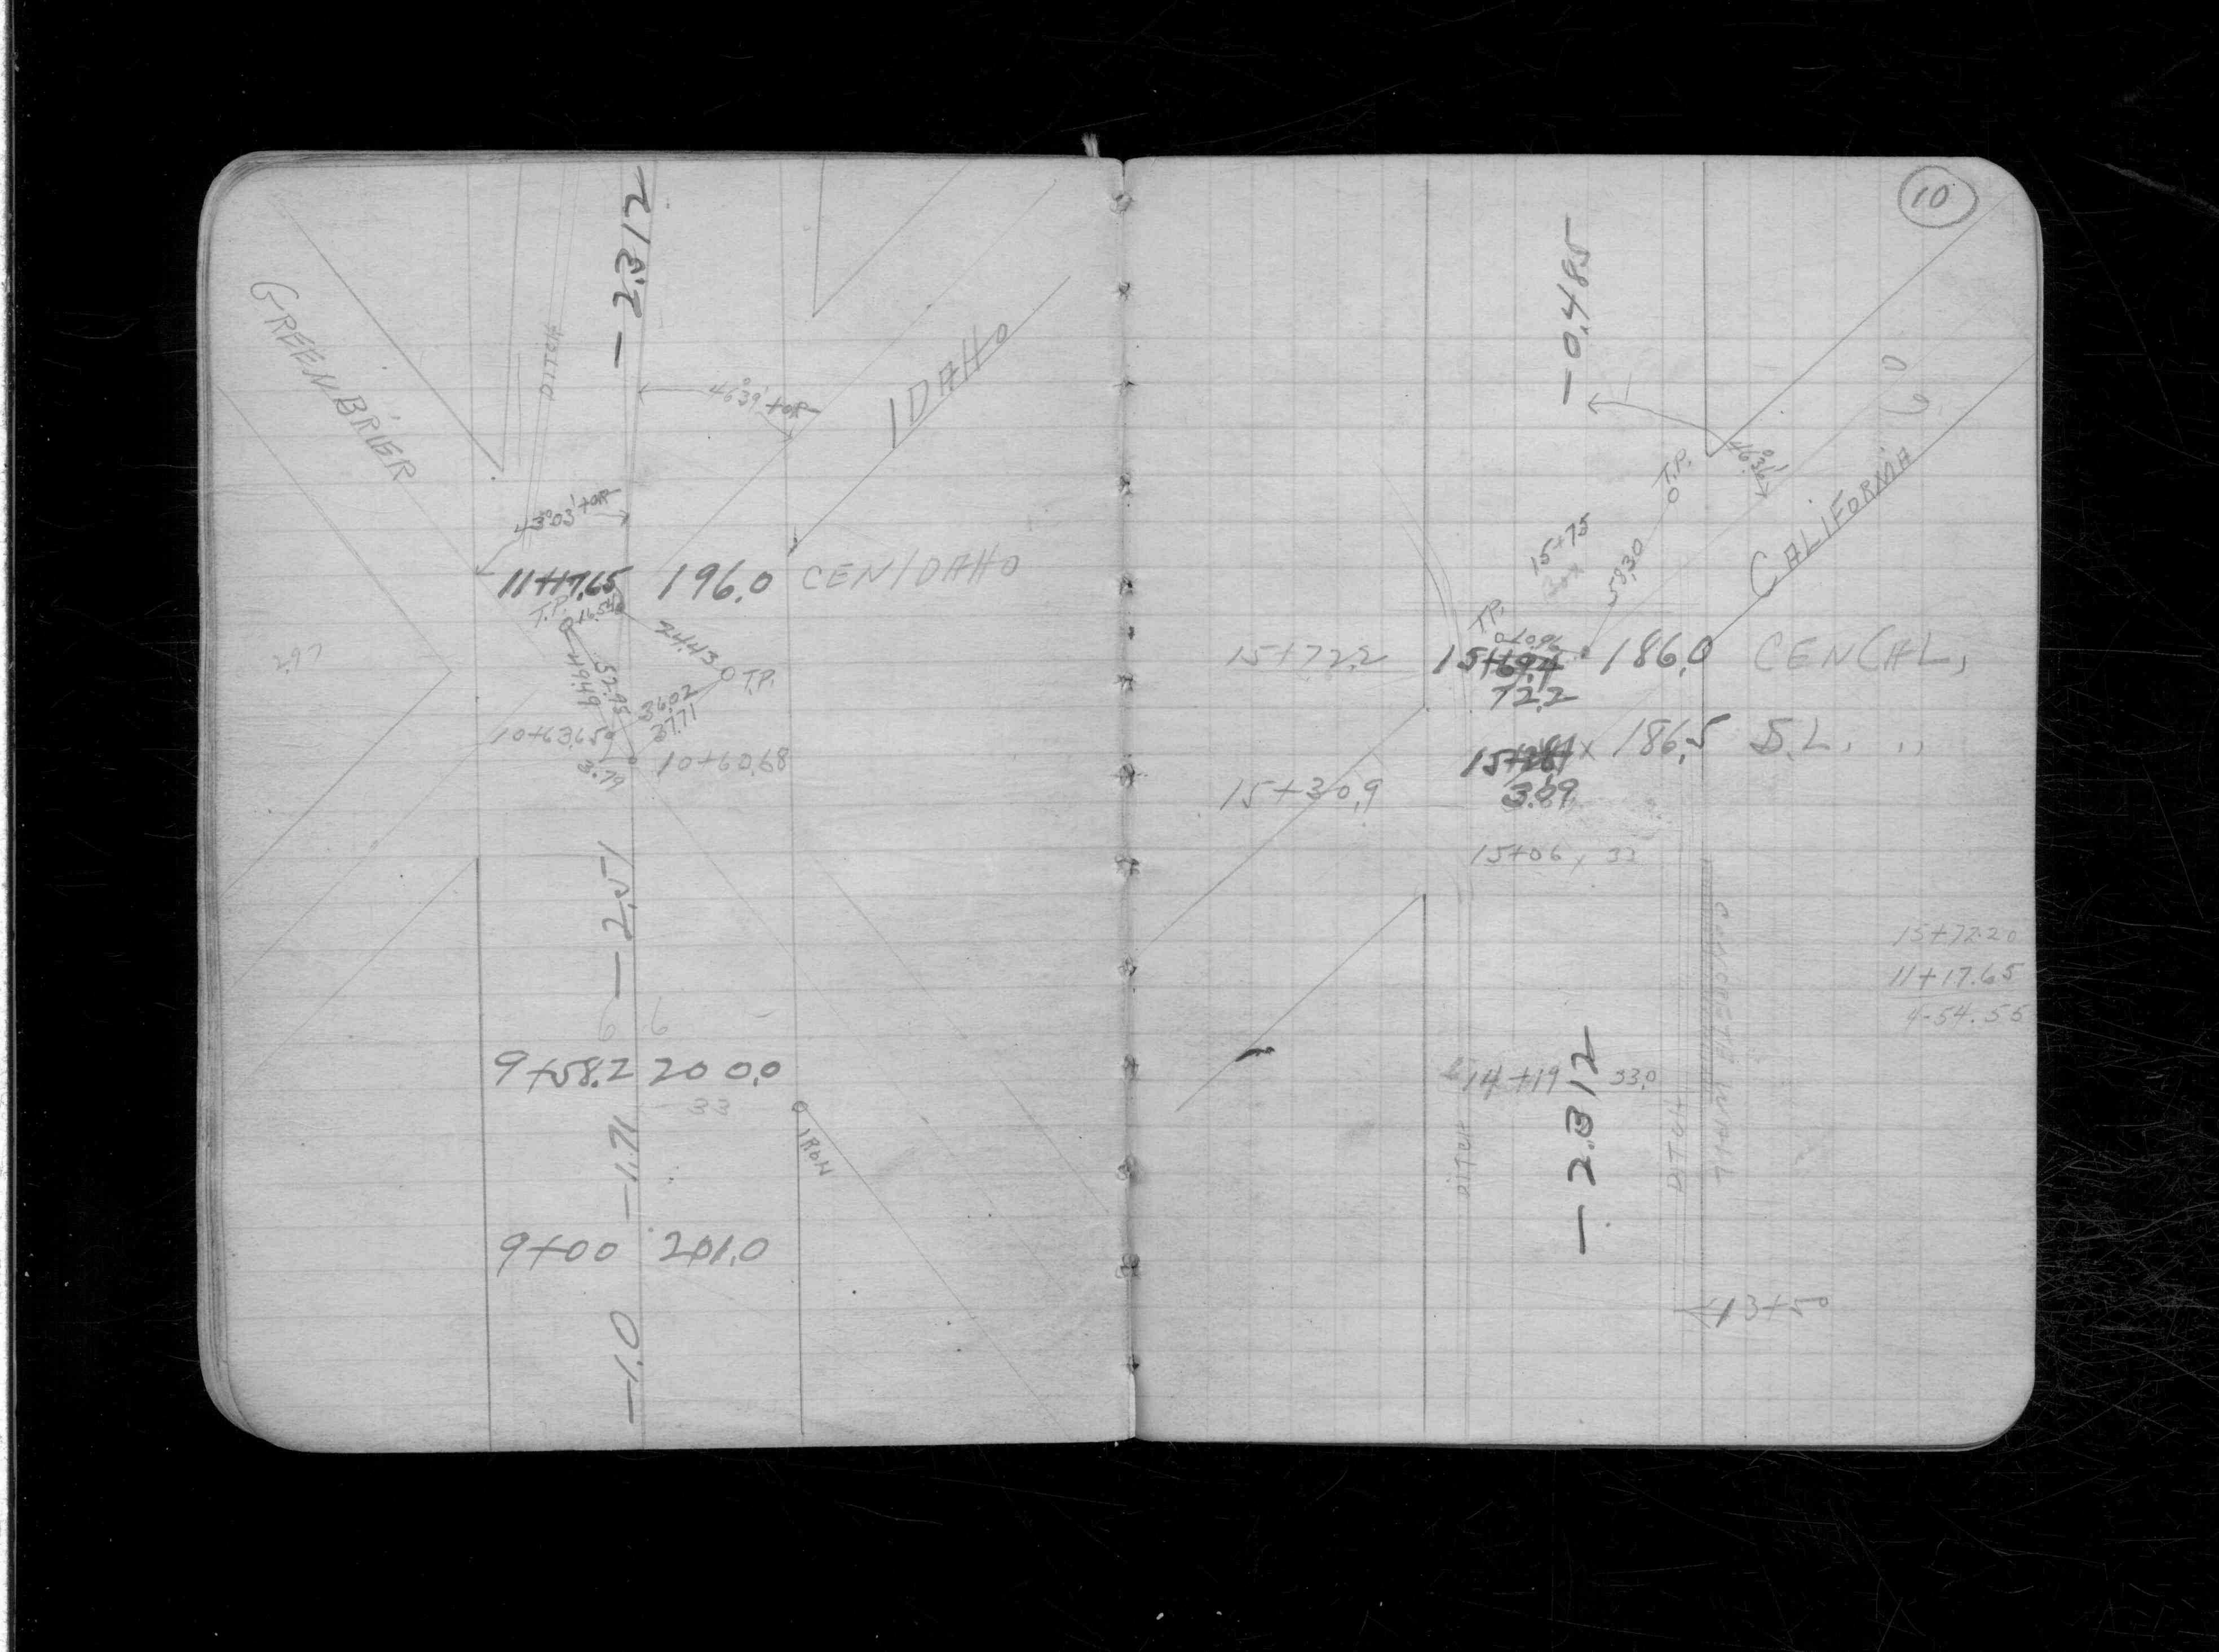 -2.312
GREENBRIER
DITCH
46°39' to R
IDAHO
43°03' to R
11+17.65 196.0 CEN IDAHO
T.P.
16.54
24.43
T.P.
2.97
49.49
52.95
36.02
37.71
10+63.65
10+60.68
3.79
-2.51
6 6
9+58.2 200.0
33
IRON
-1.71
9+00 201.0
-1.0
10
-0.485
46°36'
T.P.
CALIFORNIA
15+75
58.30
T.P.
15+72.2 15+69.4 186.0 CEN CAL.
72.2
186.5 S.L. "
15+30.9
3.09
15+06, 33
CONCRETE WALL
15+72.20
11+17.65
4-54.55
14+19 33.0
-2.312
DITCH
DITCH
13+50